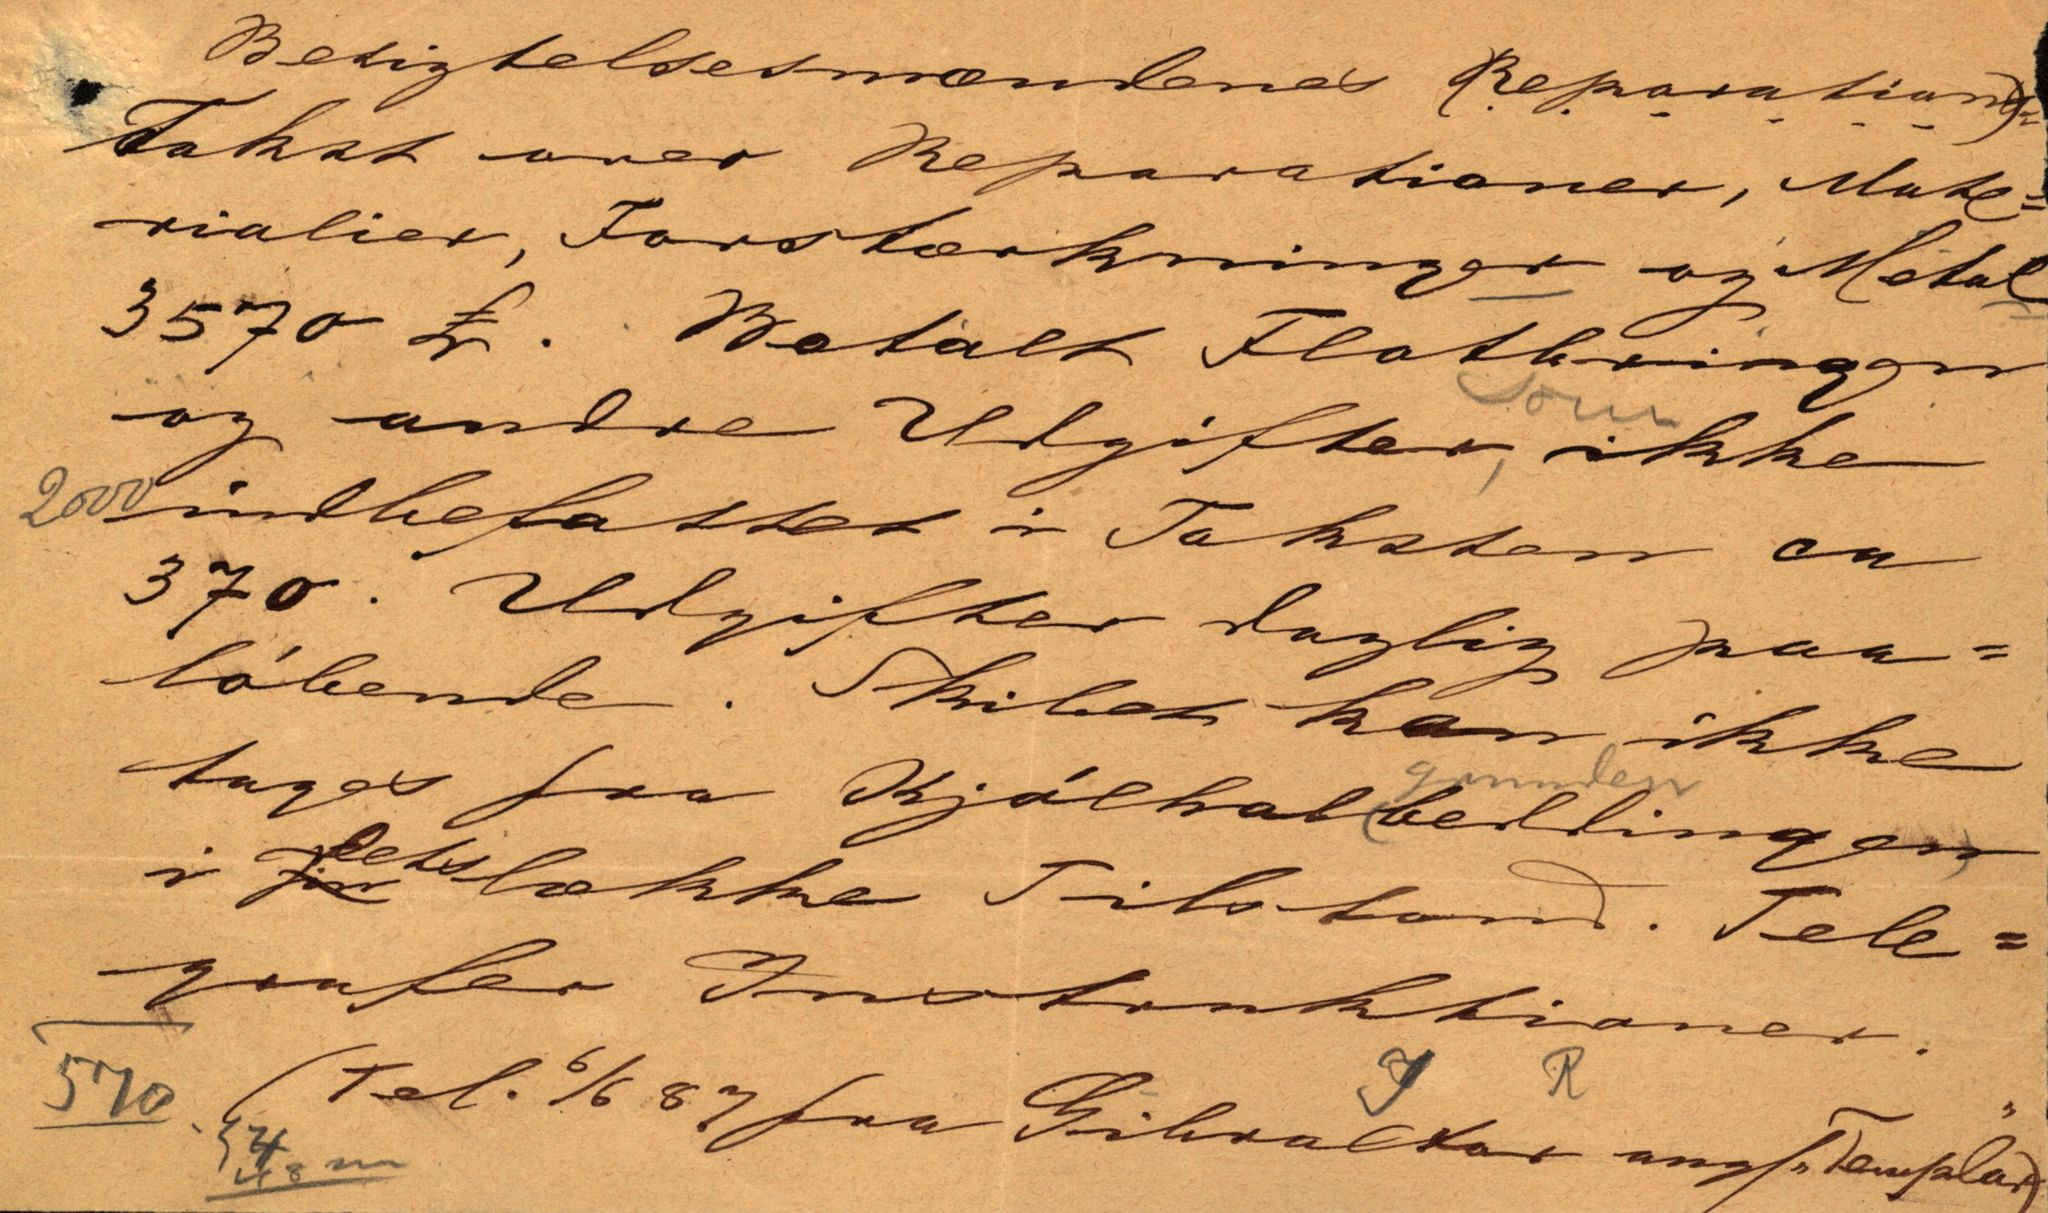 Besigtelsesmændenes (Reparations)=
Takst over Reparationer, Mate=
rialier, Forstærkninger og Metal
3570 £. Betalt Flatbringen
som
og andre Udgifter, ikke
2000 indbefattet i Taksten ca
370. Udgifter daglig paa=
løbende. Skibet kan ikke
grunden
tages fra Kjølhal(beddingen)
i dets lække Tilstand. Tele=
grafer Instruktioner.
570
J R
(Tel. 6/6 87 fra Gibraltar ang. "Templar")
48 m